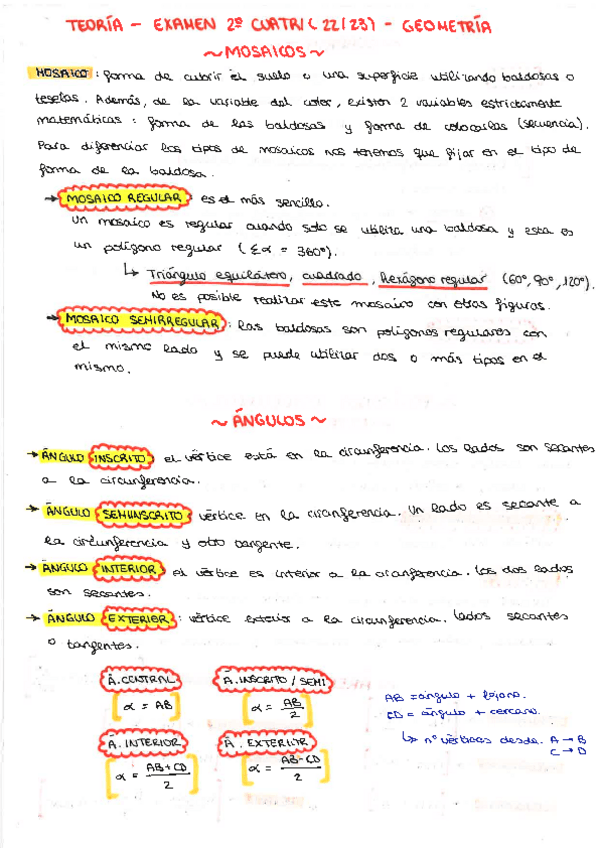 TEORÍA - EXAMEN 2º CUATRI (22/23) - GEOMETRÍA
~ MOSAICOS ~
MOSAICO: forma de cubrir el suelo o una superficie utilizando baldosas o
teselas. Además, de la variable del color, existen 2 variables estrictamente
matemáticas: forma de las baldosas y forma de colocarlas (secuencia).
Para diferenciar los tipos de mosaicos nos tenemos que fijar en el tipo de
forma de la baldosa.
→ MOSAICO REGULAR: es el más sencillo.
Un mosaico es regular cuando solo se utiliza una baldosa y esta es
un polígono regular (Σα = 360º).
↳ Triángulo equilátero, cuadrado, hexágono regular (60º, 90º, 120º).
No es posible realizar este mosaico con otras figuras.
→ MOSAICO SEMIRREGULAR: las baldosas son polígonos regulares con
el mismo lado y se puede utilizar dos o más tipos en el
mismo.
~ ÁNGULOS ~
→ ÁNGULO INSCRITO: el vértice está en la circunferencia. Los lados son secantes
a la circunferencia.
→ ÁNGULO SEMIINSCRITO: vértice en la circunferencia. Un lado es secante a
la circunferencia y otro tangente.
→ ÁNGULO INTERIOR: el vértice es interior a la circunferencia. Los dos lados
son secantes.
→ ÁNGULO EXTERIOR: vértice exterior a la circunferencia. Lados secantes
o tangentes.
Á. CENTRAL Á. INSCRITO / SEMI
α = AB α = AB/2
AB = ángulo + lejano.
CD = ángulo + cercano.
↳ nº vértices desde. A → B
C → D
Á. INTERIOR Á. EXTERIOR
α = AB + CD / 2 α = AB - CD / 2